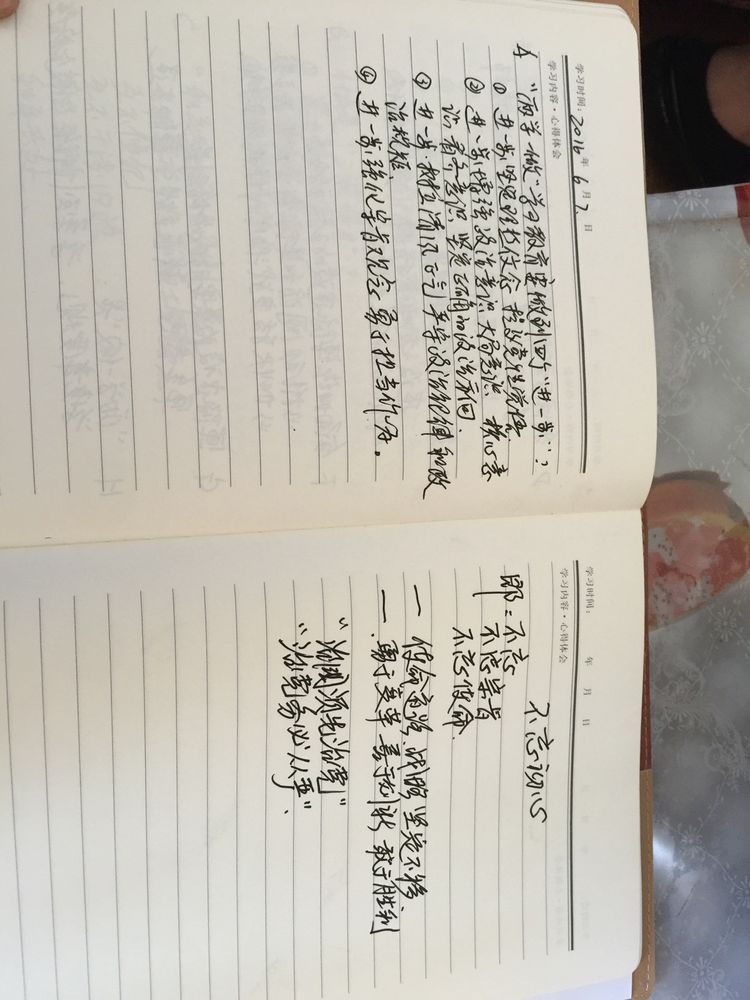 学习时间：2016年6月7日
学习内容·心得体会
A "两学一做"学习教育要做到四个"进一步"：
① 进一步坚定理想信念 提高党性觉悟
② 进一步增强政治意识 大局意识 核心意
识 看齐意识 坚定正确的政治方向
③ 进一步树立清风正气 严守政治纪律和政
治规矩
④ 进一步强化宗旨观念 勇于担当作为。
学习时间： 年 月 日
学习内容·心得体会
不忘初心
即：不忘
不忘宗旨
不忘使命
一 使命 坚定不移
一 勇于变革 敢于胜利
"治国须先治党"
"治党务必从严"